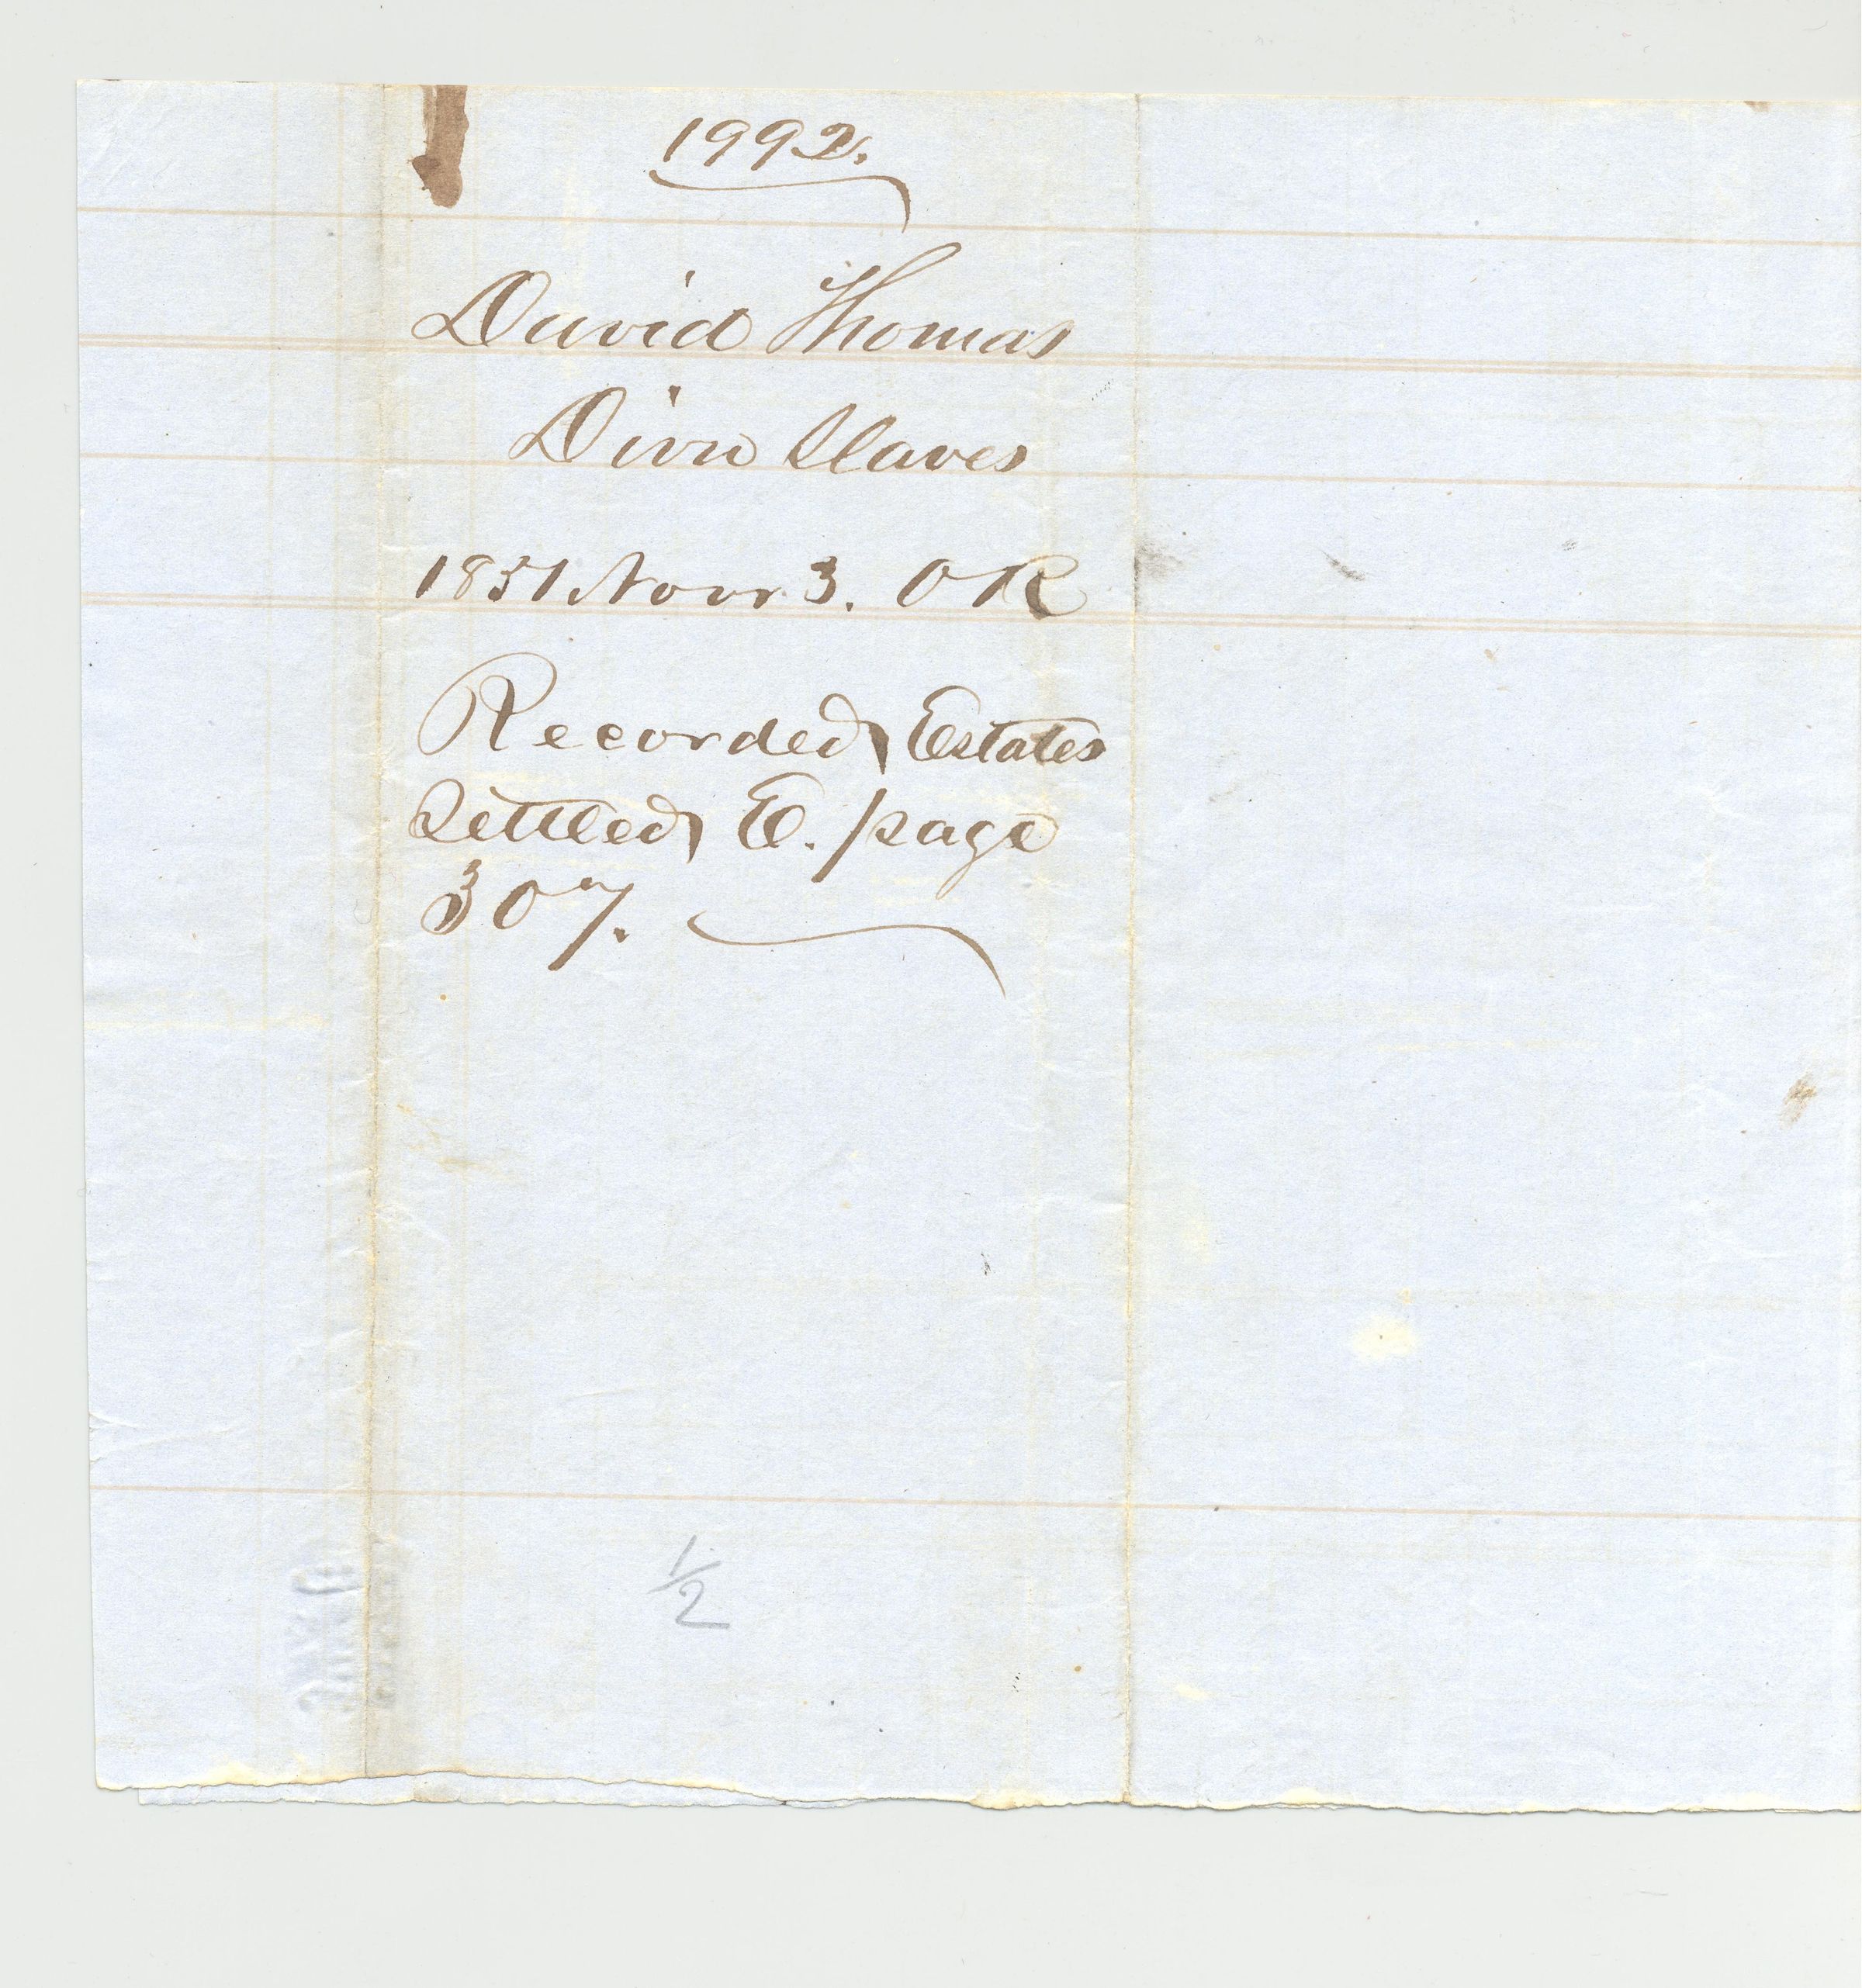 1992.
David Thomas
Divn Slaves
1851 Novr 3. OR
Recorded Estates
Settled E. page
307.
1/2